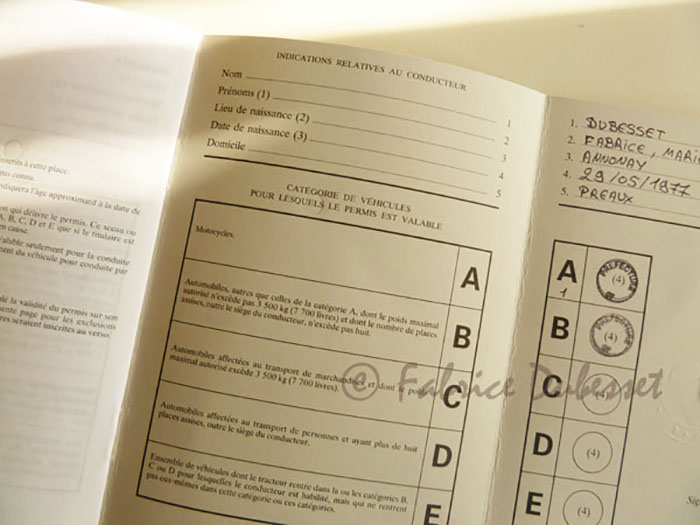 inscrits à cette place.
indiquera l'âge approximatif à la date de
on qui délivre le permis. Ce sceau ou
A, B, C, D et E que si le titulaire est
en cause.
valable seulement pour la conduite
ment du véhicule pour conduite par
le la validité du permis sur son
ente page pour les exclusions
res seraient inscrites au verso.
INDICATIONS RELATIVES AU CONDUCTEUR
Nom 1
Prénoms (1) 2
Lieu de naissance (2) 3
Date de naissance (3) 4
Domicile 5
CATÉGORIE DE VÉHICULES
POUR LESQUELS LE PERMIS EST VALABLE
Motocycles.
A
Automobiles, autres que celles de la catégorie A, dont le poids maximal
autorisé n'excède pas 3 500 kg (7 700 livres) et dont le nombre de places
assises, outre le siège du conducteur, n'excède pas huit.
B
Automobiles affectées au transport de marchandises et dont le poids
maximal autorisé excède 3 500 kg (7 700 livres).
C
Automobiles affectées au transport de personnes et ayant plus de huit
places assises, outre le siège du conducteur.
D
Ensemble de véhicules dont le tracteur rentre dans la ou les catégories B,
C ou D pour lesquelles le conducteur est habilité, mais qui ne rentrent
pas eux-mêmes dans cette catégorie ou ces catégories.
E
1. DUBESSET
2. FABRICE, MARI
3. ANNONAY
4. 29/05/1977
5. PREAUX
A 1 PREFECTURE (4)
B PREFECTURE (4)
C (4)
D (4)
E (4)
© Fabrice Dubesset